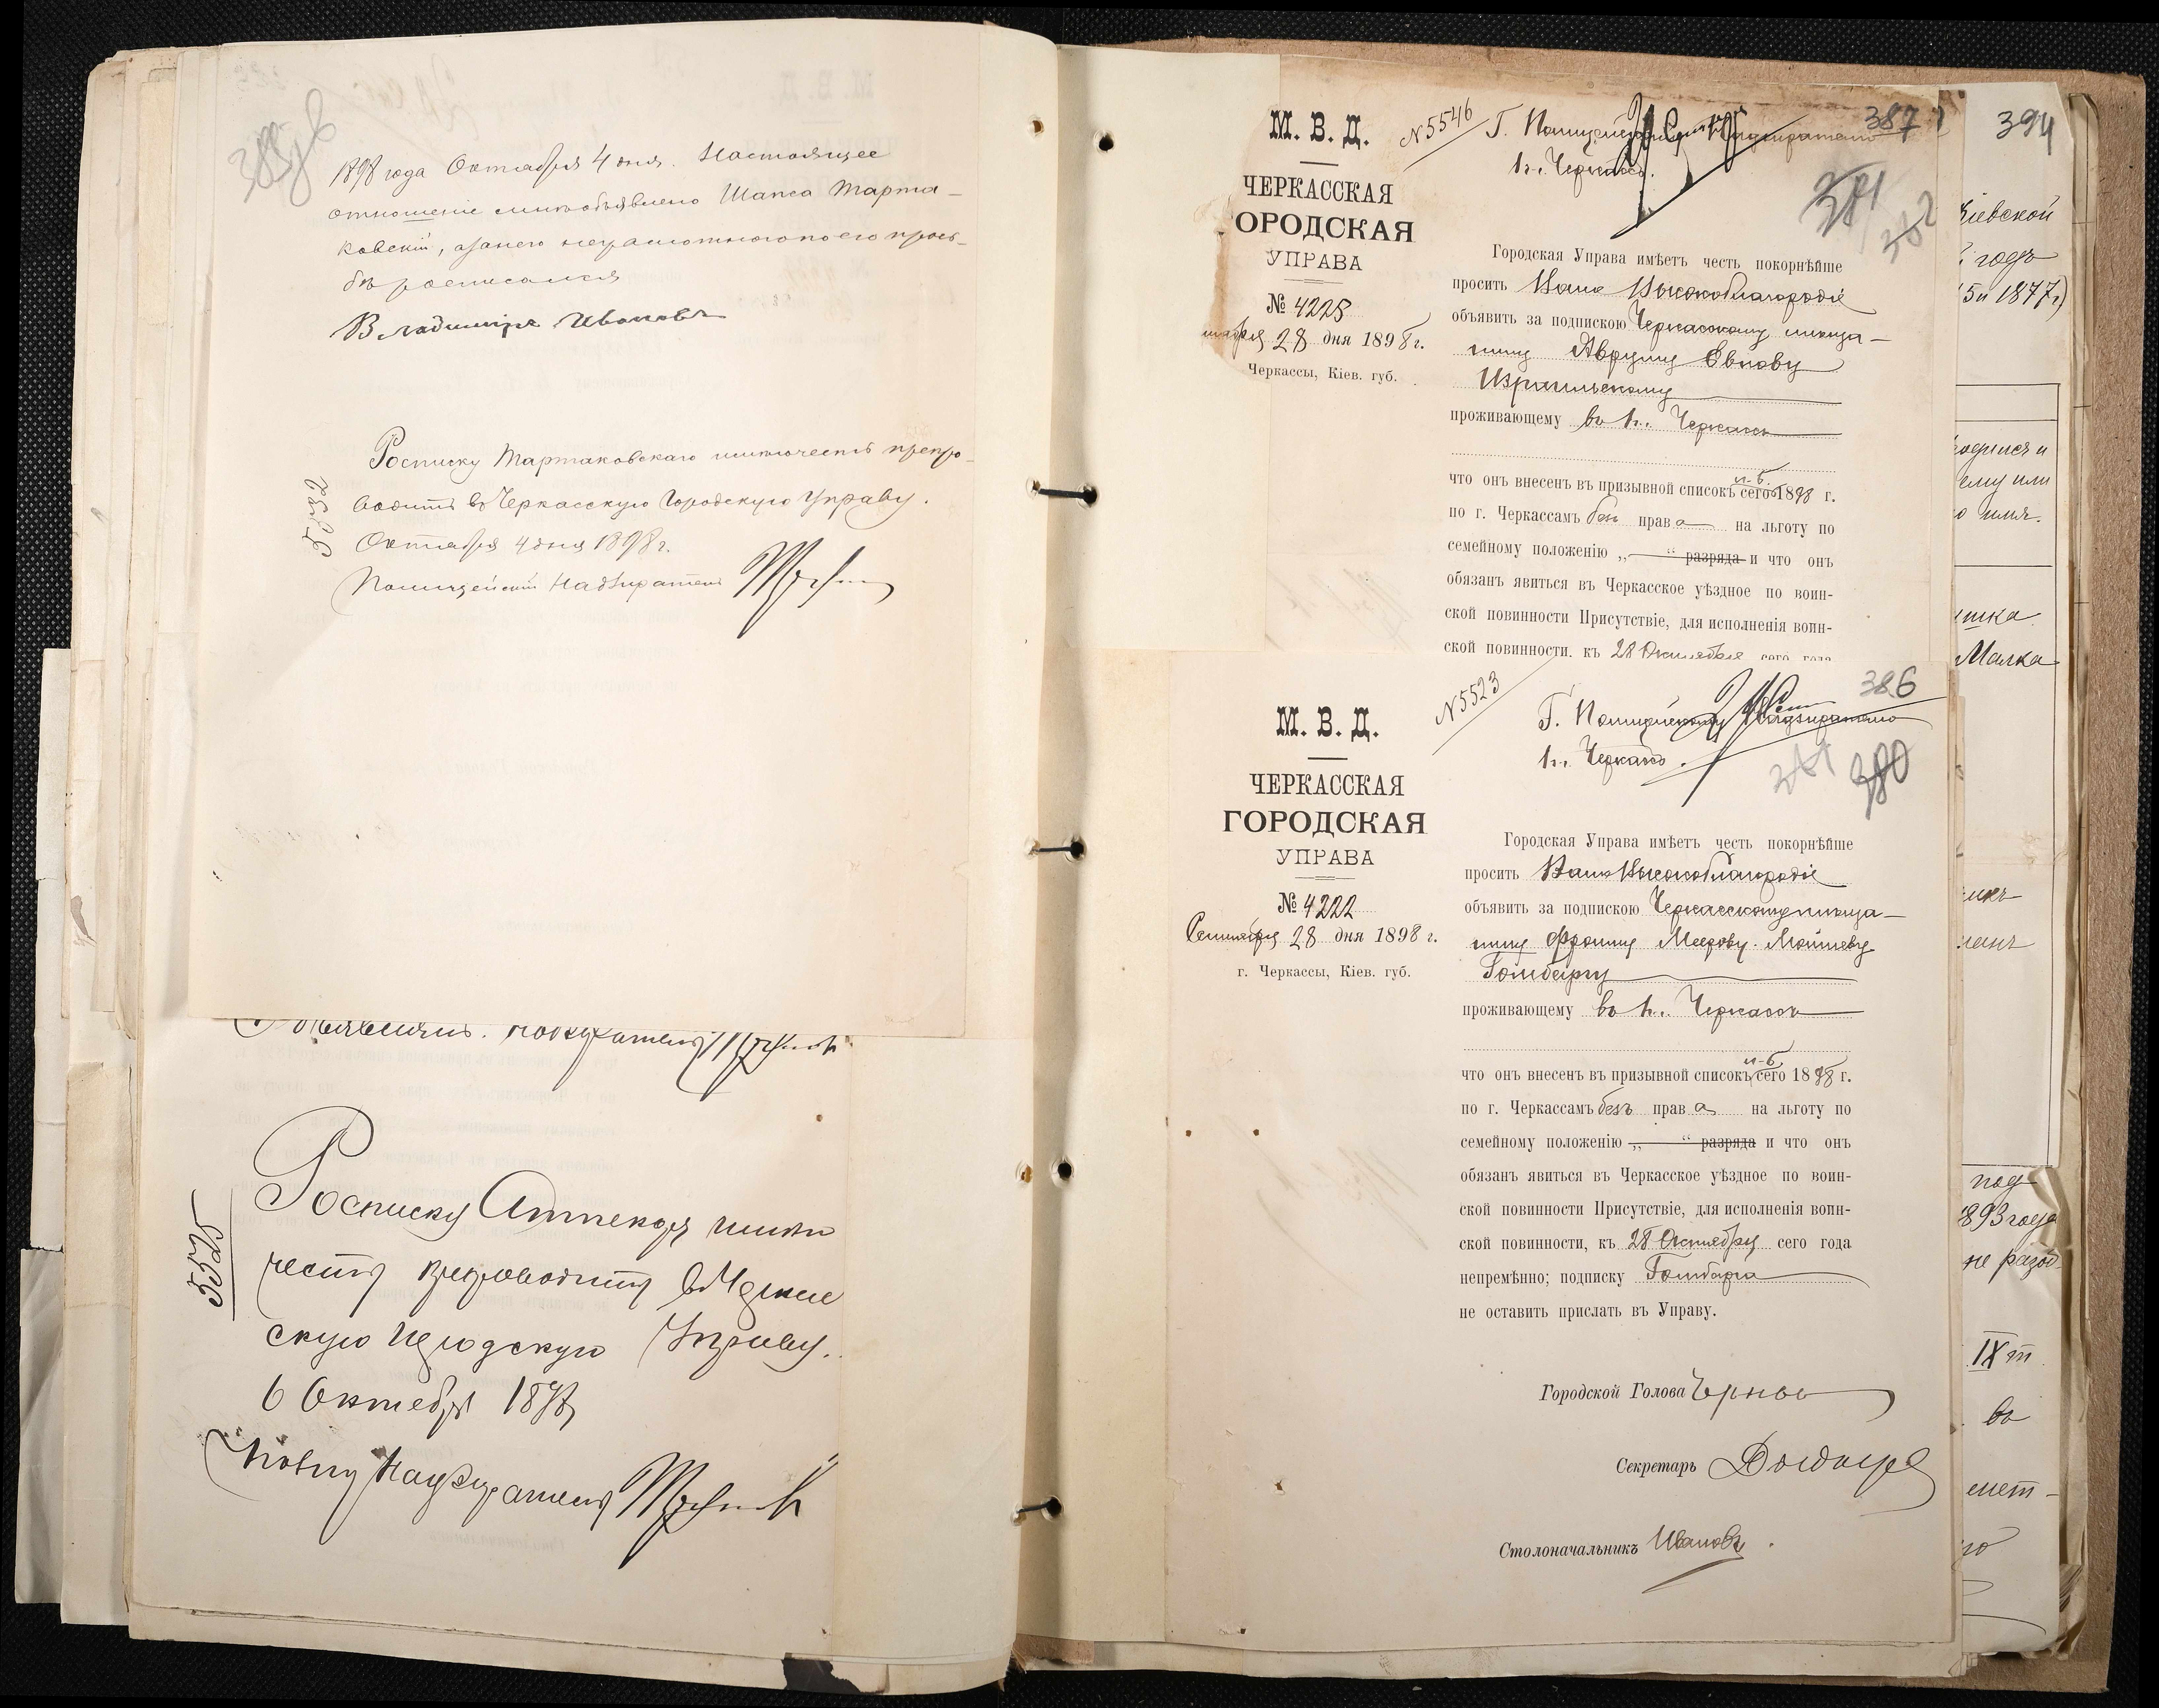 1898 года Октября 4 дня. Настоящее
отношение мне объявлено Шапса Тарта-
ковский, а за него неграмотного по его прось-
бѣ росписался
Владимиръ Ивановъ
Росписку Тартаковскаго имею честь препро-
водить въ Черкасскую Городскую Управу.
Октября 4 дня 1898 г.
Полицейскій Надзиратель
5532
Надзиратель
5525
Росписку имею
честь препроводить в Черкас
скую Городскую Управу.
6 Октября 1898
Надзиратель
М. В. Д.
ЧЕРКАССКАЯ
ОРОДСКАЯ
УПРАВА
№ 4225
28 дня 1898 г.
Черкассы, Кіев. губ.
N 5546
Г. Полицейскому Надзирателю
г. Черкассъ.
387
381
382
Городская Управа имѣетъ честь покорнѣйше
просить Ваше Высокоблагородіе
объявить за подпискою Черкасскому мѣща-
нину Аврулу Евнову
Израильскому
проживающему въ г. Черкассы
что онъ внесенъ въ призывной списокъ сего 1898 г.
по г. Черкассамъ безъ права на льготу по
семейному положенію „ “ разряда и что онъ
обязанъ явиться въ Черкасское уѣздное по воин-
ской повинности Присутствіе, для исполненія воин-
ской повинности, къ 28 Октября сего года
М. В. Д.
ЧЕРКАССКАЯ
ГОРОДСКАЯ
УПРАВА
№ 4222
Сентября 28 дня 1898 г.
г. Черкассы, Кіев. губ.
N 5523
Г. Полицейскому Надзирателю
г. Черкассъ.
386
380
Городская Управа имѣетъ честь покорнѣйше
просить Ваше Высокоблагородіе
объявить за подпискою Черкасскому мѣща-
нину Фроиму Меерову-Мойшеву
Гомбергу
проживающему въ г. Черкассы
что онъ внесенъ въ призывной списокъ сего 1898 г.
по г. Черкассамъ безъ права на льготу по
семейному положенію „ “ разряда и что онъ
обязанъ явиться въ Черкасское уѣздное по воин-
ской повинности Присутствіе, для исполненія воин-
ской повинности, къ 28 Октября сего года
непремѣнно; подписку Гомберга
не оставить прислать въ Управу.
Городской Голова
Секретарь
Столоначальникъ Ивановъ.
394
Кіевской
годъ
1877 г)
ему или
Малка
под
1893 года
не разод
IX т
въ